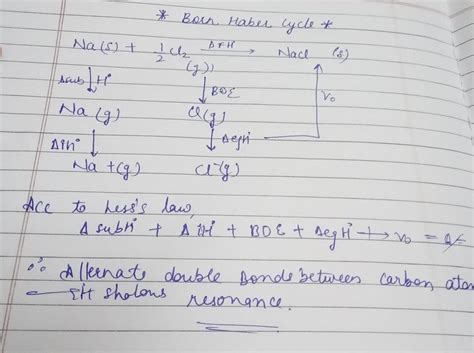 * Born Haber Cycle *
Na(s) + 1/2 Cl₂ (g)) ΔfH → NaCl (s)
Δsub H° ↓ ↓ BDE V₀
Na (g) Cl(g)
ΔiH° ↓ ↓ ΔegH
Na +(g) Cl⁻(g)
Acc to Hess's law,
ΔsubH° + ΔiH° + BDE + ΔegH + V₀ =
∴ Alternate double Bonds between carbon atom
resonance.